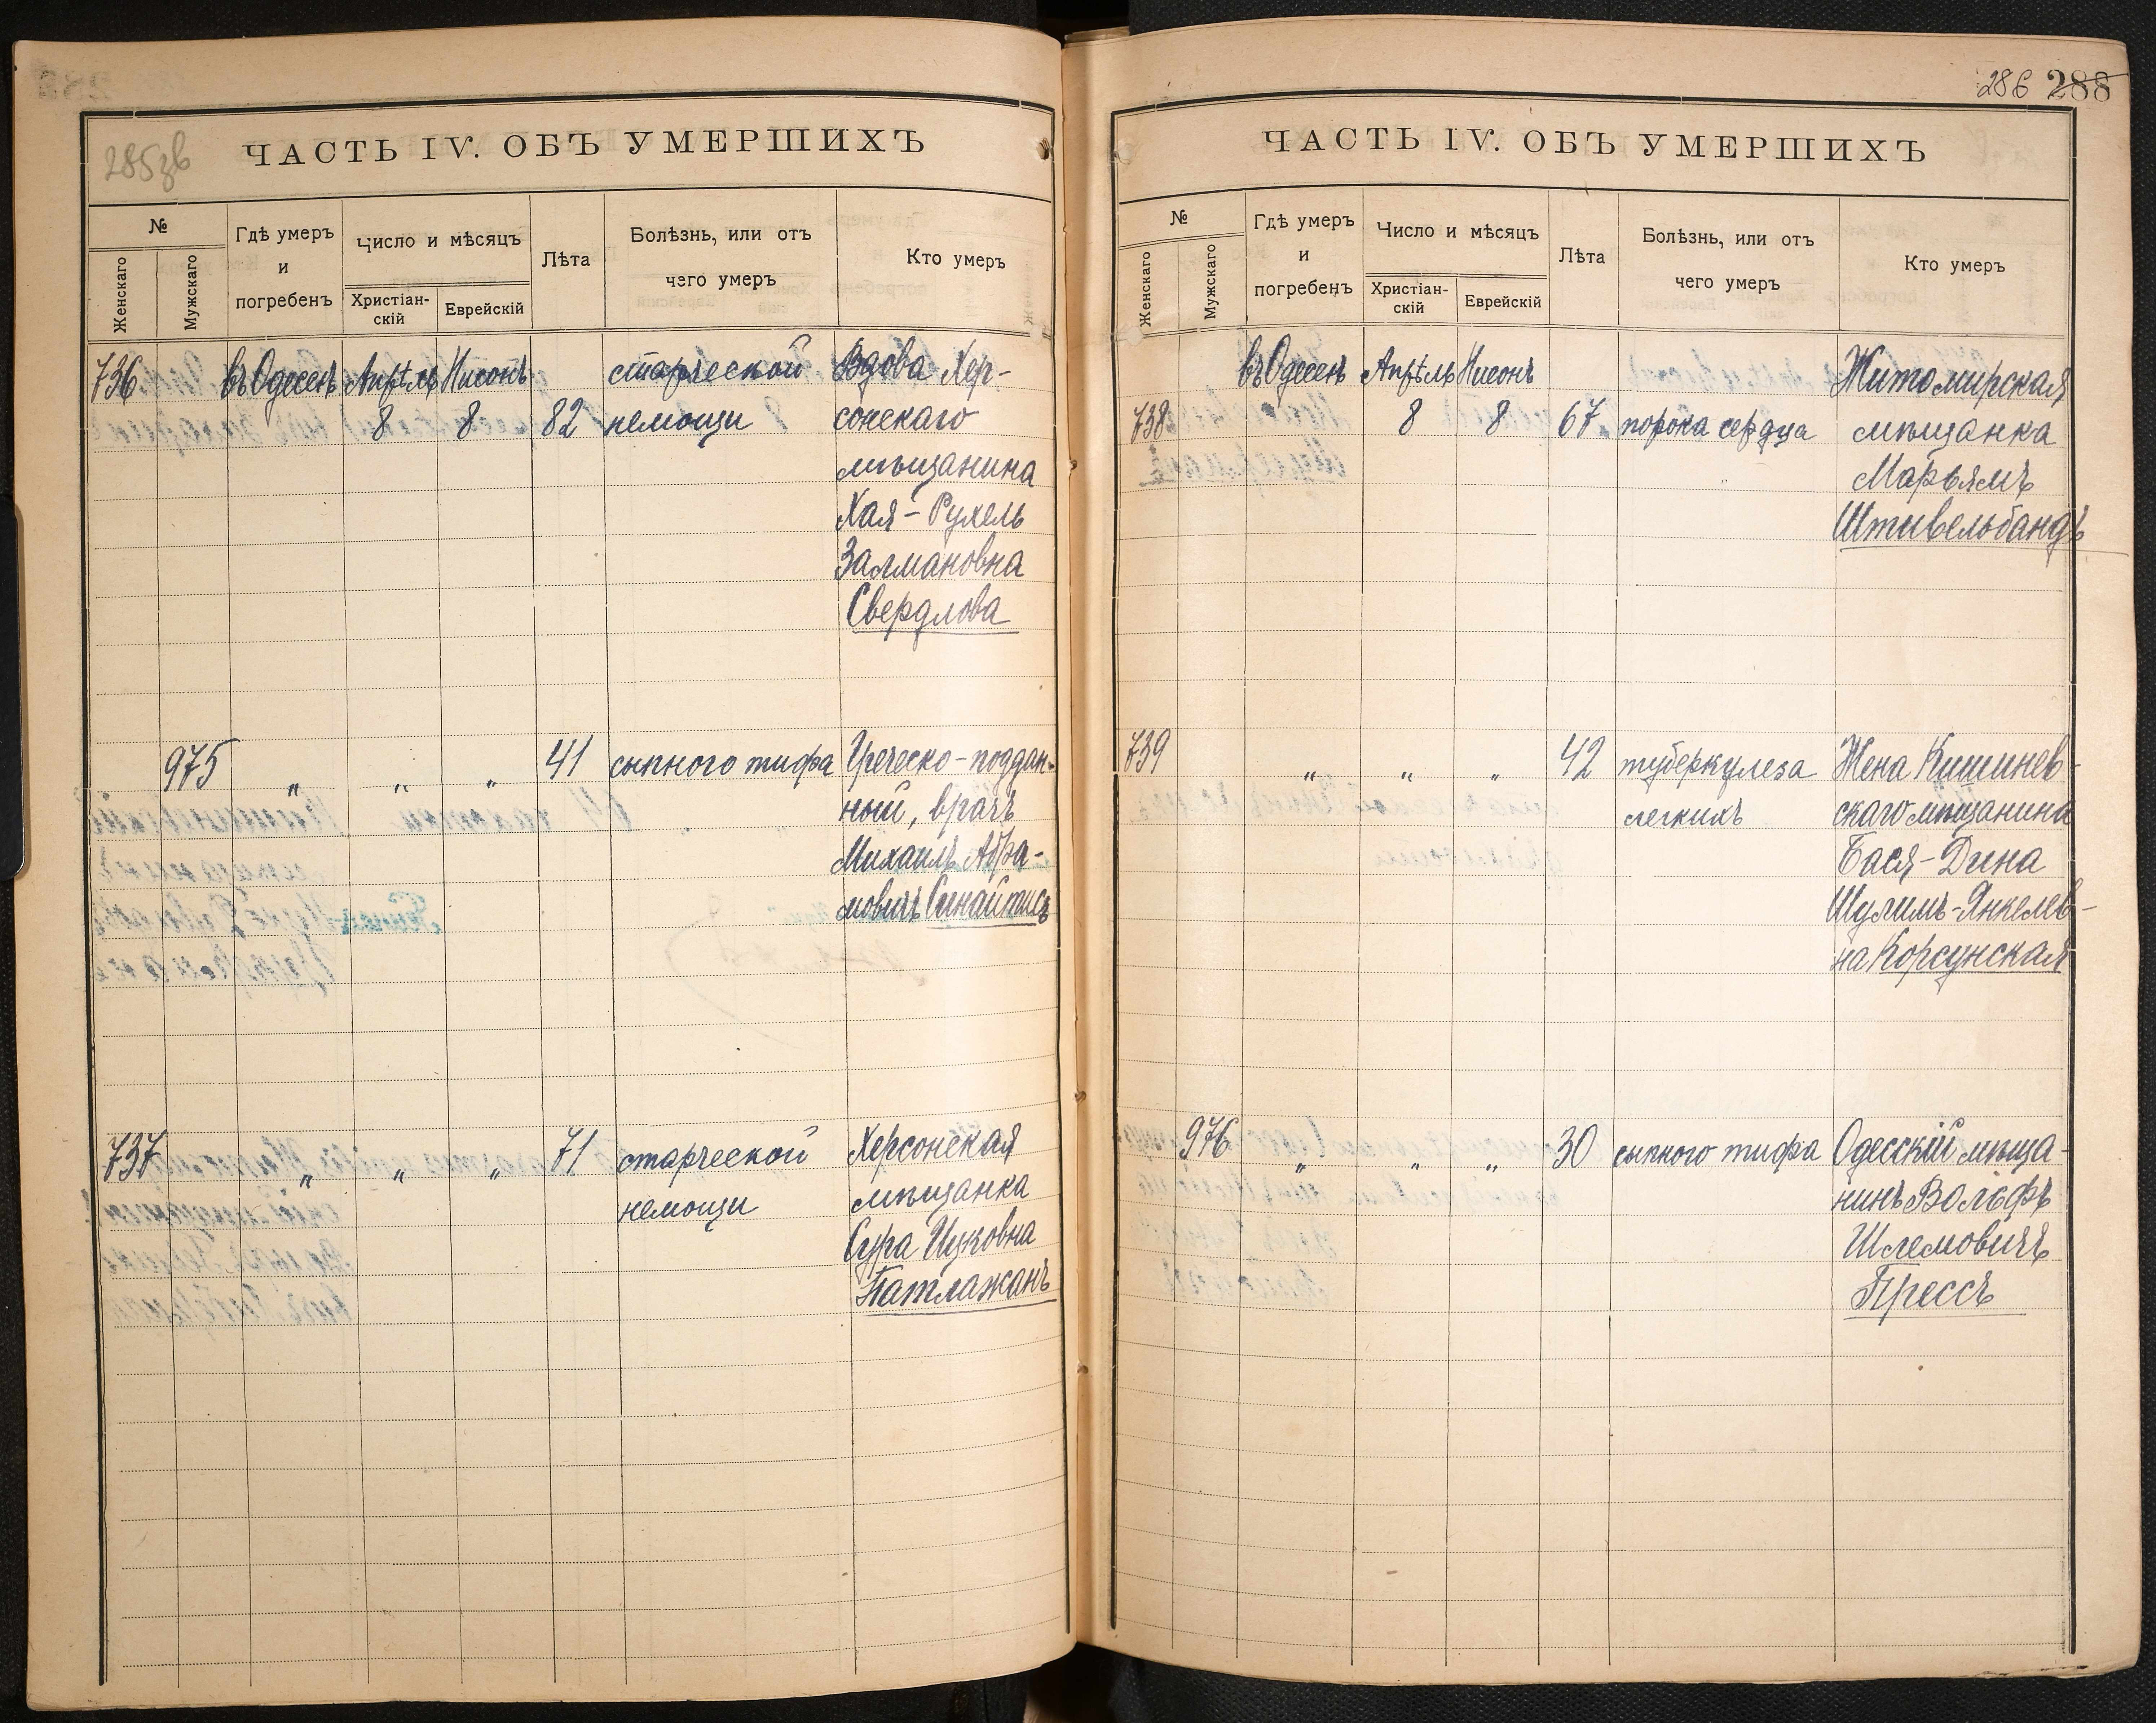 285зв
ЧАСТЬ IV. ОБЪ УМЕРШИХЪ
№
Женскаго
Мужскаго
Гдѣ умеръ
и
погребенъ
Число и мѣсяцъ
Христіан-
скій
Еврейскій
Лѣта
Болѣзнь, или отъ
чего умеръ
Кто умеръ
736 въ Одессѣ Апрѣль Нисонъ старческой Вдова Хер-
8 8 82 немощи сонскаго
мѣщанина
Хая-Рухель
Залмановна
Свердлова
975 " " " 41 сыпного тифа Греческо-поддан-
ный, врачъ
Михаилъ Абра-
мовичъ
737 " " " 71 старческой Херсонская
немощи мѣщанка
Сура Ицковна
Патлажанъ
286 288
ЧАСТЬ IV. ОБЪ УМЕРШИХЪ
№
Женскаго
Мужскаго
Гдѣ умеръ
и
погребенъ
Число и мѣсяцъ
Христіан-
скій
Еврейскій
Лѣта
Болѣзнь, или отъ
чего умеръ
Кто умеръ
въ Одессѣ Апрѣль Нисонъ Житомирская
738 8 8 67 порока сердца мѣщанка
Марьямъ
Штивельбандъ
739 " " " 42 туберкулеза Жена Кишинев-
легкихъ скаго мѣщанина
Бася-Дина
Шулимъ-Янкелев-
на Корсунская
976 " " " 30 сыпного тифа Одесскій мѣща-
нинъ Вольфъ
Шлемовичъ
Прессъ